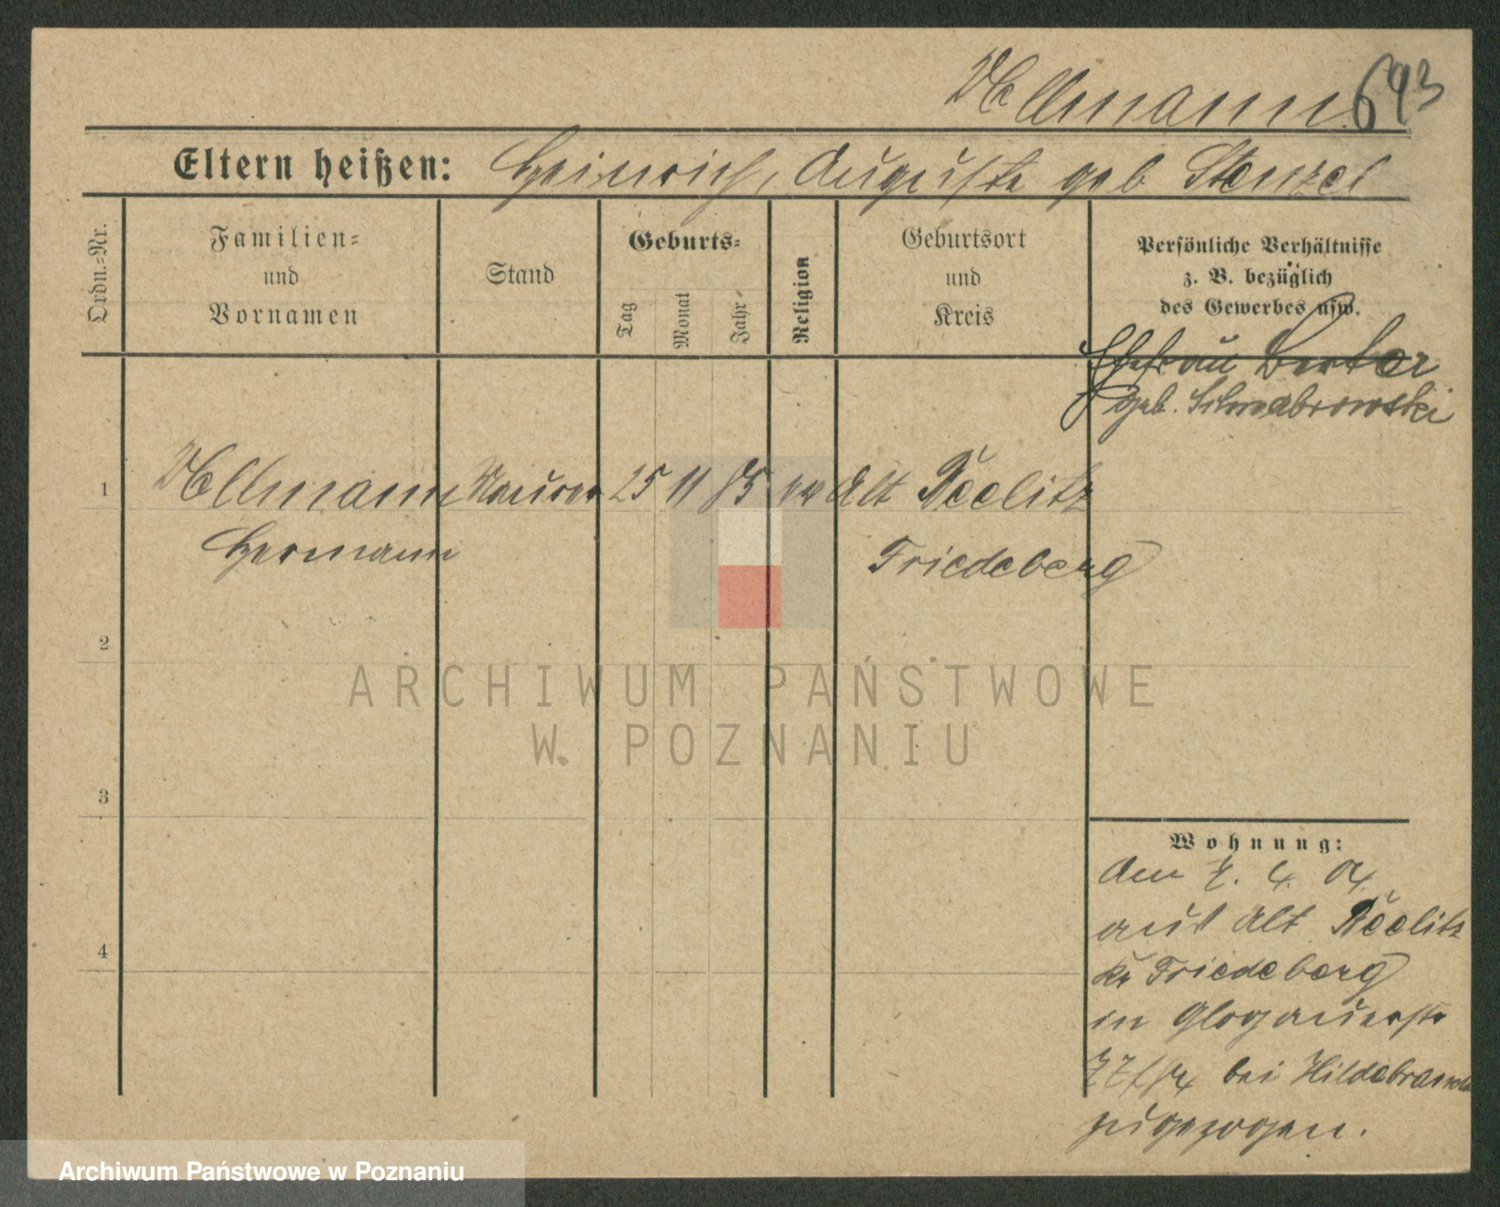 Wellmann 693
Eltern heißen: Heinrich, Auguste geb Stenzel
Ordn.-Nr.
Familien-
und
Vornamen
Stand
Geburts-
Tag
Monat
Jahr
Religion
Geburtsort
und
Kreis
Persönliche Verhältnisse
z. B. bezüglich
des Gewerbes usw.
Ehefrau
geb.
1 Wellmann Maurer 25 11 85 ev Alt Beelitz
Hermann Friedeberg
2
3
4
Wohnung:
Am 7. 4. 04
aus Alt Beelitz
Kr Friedeberg
in Glogauerstr
bei Hildebrandt
zugezogen.
ARCHIWUM PAŃSTWOWE
W POZNANIU
Archiwum Państwowe w Poznaniu